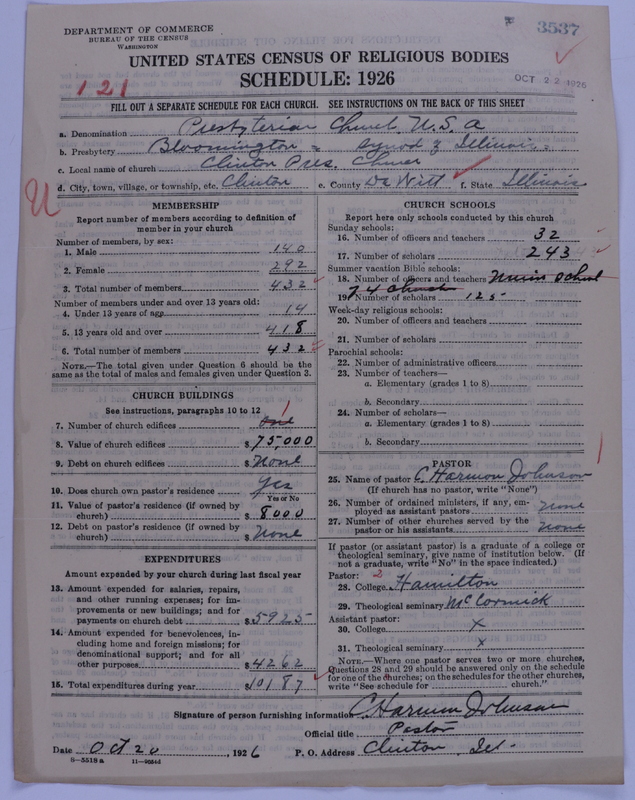 DEPARTMENT OF COMMERCE
BUREAU OF THE CENSUS
WASHINGTON
3537
UNITED STATES CENSUS OF RELIGIOUS BODIES
SCHEDULE: 1926
121
OCT 22 1926
FILL OUT A SEPARATE SCHEDULE FOR EACH CHURCH. SEE INSTRUCTIONS ON THE BACK OF THIS SHEET
a. Denomination Presbyterian Church U.S.A
b. Presbytery Bloomington = Synod of Illinois =
c. Local name of church Clinton Pres. Church
d. City, town, village, or township, etc. Clinton e. County De Witt f. State Illinois
MEMBERSHIP
Report number of members according to definition of member in your church
Number of members, by sex:
1. Male 140
2. Female 292
3. Total number of members 432
Number of members under and over 13 years old:
4. Under 13 years of age 14
5. 13 years old and over 418
6. Total number of members 432
NOTE.—The total given under Question 6 should be the same as the total of males and females given under Question 3.
CHURCH BUILDINGS
See instructions, paragraphs 10 to 12
7. Number of church edifices one 1
8. Value of church edifices $75,000
9. Debt on church edifices $ None
10. Does church own pastor's residence Yes
Yes or No
11. Value of pastor's residence (if owned by church) $8000
12. Debt on pastor's residence (if owned by church) $ None
EXPENDITURES
Amount expended by your church during last fiscal year
13. Amount expended for salaries, repairs, and other running expenses; for improvements or new buildings; and for payments on church debt $5925
14. Amount expended for benevolences, including home and foreign missions; for denominational support; and for all other purposes $4262
15. Total expenditures during year $10187
CHURCH SCHOOLS
Report here only schools conducted by this church
Sunday schools:
16. Number of officers and teachers 32
17. Number of scholars 243
Summer vacation Bible schools:
18. Number of officers and teachers Union School
of 4 Church
19. Number of scholars 125
Week-day religious schools:
20. Number of officers and teachers
21. Number of scholars
Parochial schools:
22. Number of administrative officers
23. Number of teachers—
a. Elementary (grades 1 to 8)
b. Secondary
24. Number of scholars—
a. Elementary (grades 1 to 8)
b. Secondary
PASTOR
25. Name of pastor C. Harmon Johnson
(If church has no pastor, write "None")
26. Number of ordained ministers, if any, employed as assistant pastors None
27. Number of other churches served by the pastor or his assistants None
If pastor (or assistant pastor) is a graduate of a college or theological seminary, give name of institution below. (If not a graduate, write "No" in the space indicated.)
Pastor: 2
28. College Hamilton
29. Theological seminary McCormick
Assistant pastor:
30. College x
31. Theological seminary x
NOTE.—Where one pastor serves two or more churches, Questions 28 and 29 should be answered only on the schedule for one of the churches; on the schedules for the other churches, write "See schedule for church."
Signature of person furnishing information C. Harmon Johnson
Official title Pastor
Date Oct 20, 1926 P. O. Address Clinton, Ill.
8-5518a